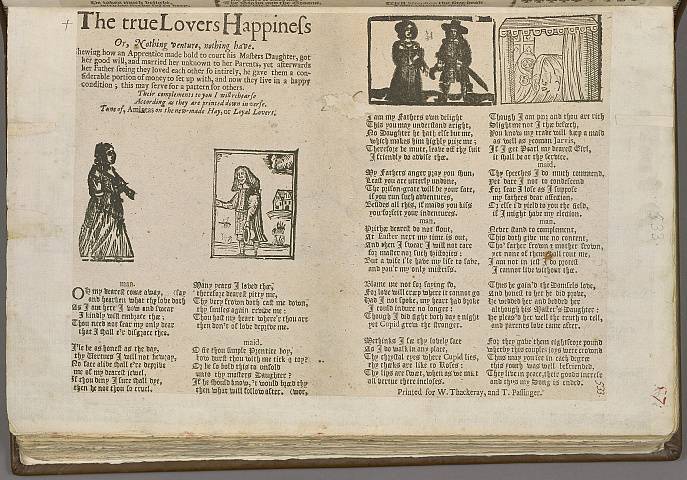 The true Lovers Happiness
Or, Nothing venture, nothing have.
Shewing how an Apprentice made bold to court his Masters Daughter, got
her good will, and married her unknown to her Parents, yet afterwards
her Father seeing they loved each other so intirely, he gave them a con-
siderable portion of money to set up with, and now they live in a happy
condition; this may serve for a pattern for others.
Their complements to you I will rehearse
According as they are printed down in verse.
Tune of, Amintas on the new-made Hay, or Loyal Lovers,
man.
Oh my dearest come away, (say
and hearken what thy love doth
As I am here I vow and swear
I kindly will embrace thee:
Thou need not fear my only dear
that I shall e'r disgrace thee.
I'le be honest as the day,
thy Vertues I will not betray,
No face alive shall e're deprive
me of my dearest jewel.
If thou deny I sure shall dye,
then be not thou so cruel.
Many years I loved thee,
therefore dearest pitty me,
Thy very frown doth cast me down,
thy smiles again revive me:
Thou hast my heart where'r thou art
then don't of love deprive me.
maid.
O fie thou simple Prentice boy,
how durst thou with me tick a toy?
Or be so bold this to unfold
unto thy masters Daughter?
If he should know, 't would breed thy
then what will follow after. (woe,
I am my Fathers own delight
This you may understand aright,
No Daughter he hath else but me,
which makes him highly prize me;
Therefore be mute, leave off thy suit
I friendly do advise thee.
My Fathers anger pray you shun,
Least you are utterly undone,
The prison-grate will be your fate,
if you run such adventures,
Besides all this, if maids you kiss
you forfeit your indentures.
man.
Prithee dearest do not flout,
At Easter next my time is out,
And then I swear I will not care
for master nor such victories:
But a wife i'le have my life to save,
and you'r my only mistriss.
Blame me not for saying so,
For love will creep where it cannot go
Had I not spoke, my heart had broke
I could indure no longer:
Though I did fight both day & night
yet Cupid grew the stronger.
Methinks I see thy lovely face
As I do walk in any place,
Thy chrystal eyes where Cupid lies,
thy cheeks are like to Roses:
Thy lips are sweet, when as we meet
all vertue there incloses.
Though I am poor and thou art rich
Slight me not I thee beseech,
You know my trade will keep a maid
as well as yeoman Jarvis,
If I get Pearl my dearest Girl,
it shall be at thy service.
maid.
Thy speeches I do much commend,
Yet dare I not to condescend
For fear I lose as I suppose
my fathers dear affection,
Or else i'd yield to you the field,
if I might have my election.
man.
Never stand to complement,
This doth give me no content,
Tho' father frown & mother frown,
yet none of them
I am not in jest I do protest
I cannot live without thee.
Thus he gain'd the Damsels love,
And honest to her he did prove,
He wedded her and bedded her
although his Master's Daughter:
He pleas'd her well the truth to tell,
and parents love came after.
For they gave them eightscore pound
whereby this couples joys were crownd
Thus may you see in each degree
this youth was well befriended,
They live in peace, their goods increase
and thus my Song is ended.
Printed for W. Thackeray, and T. Passinger.
533